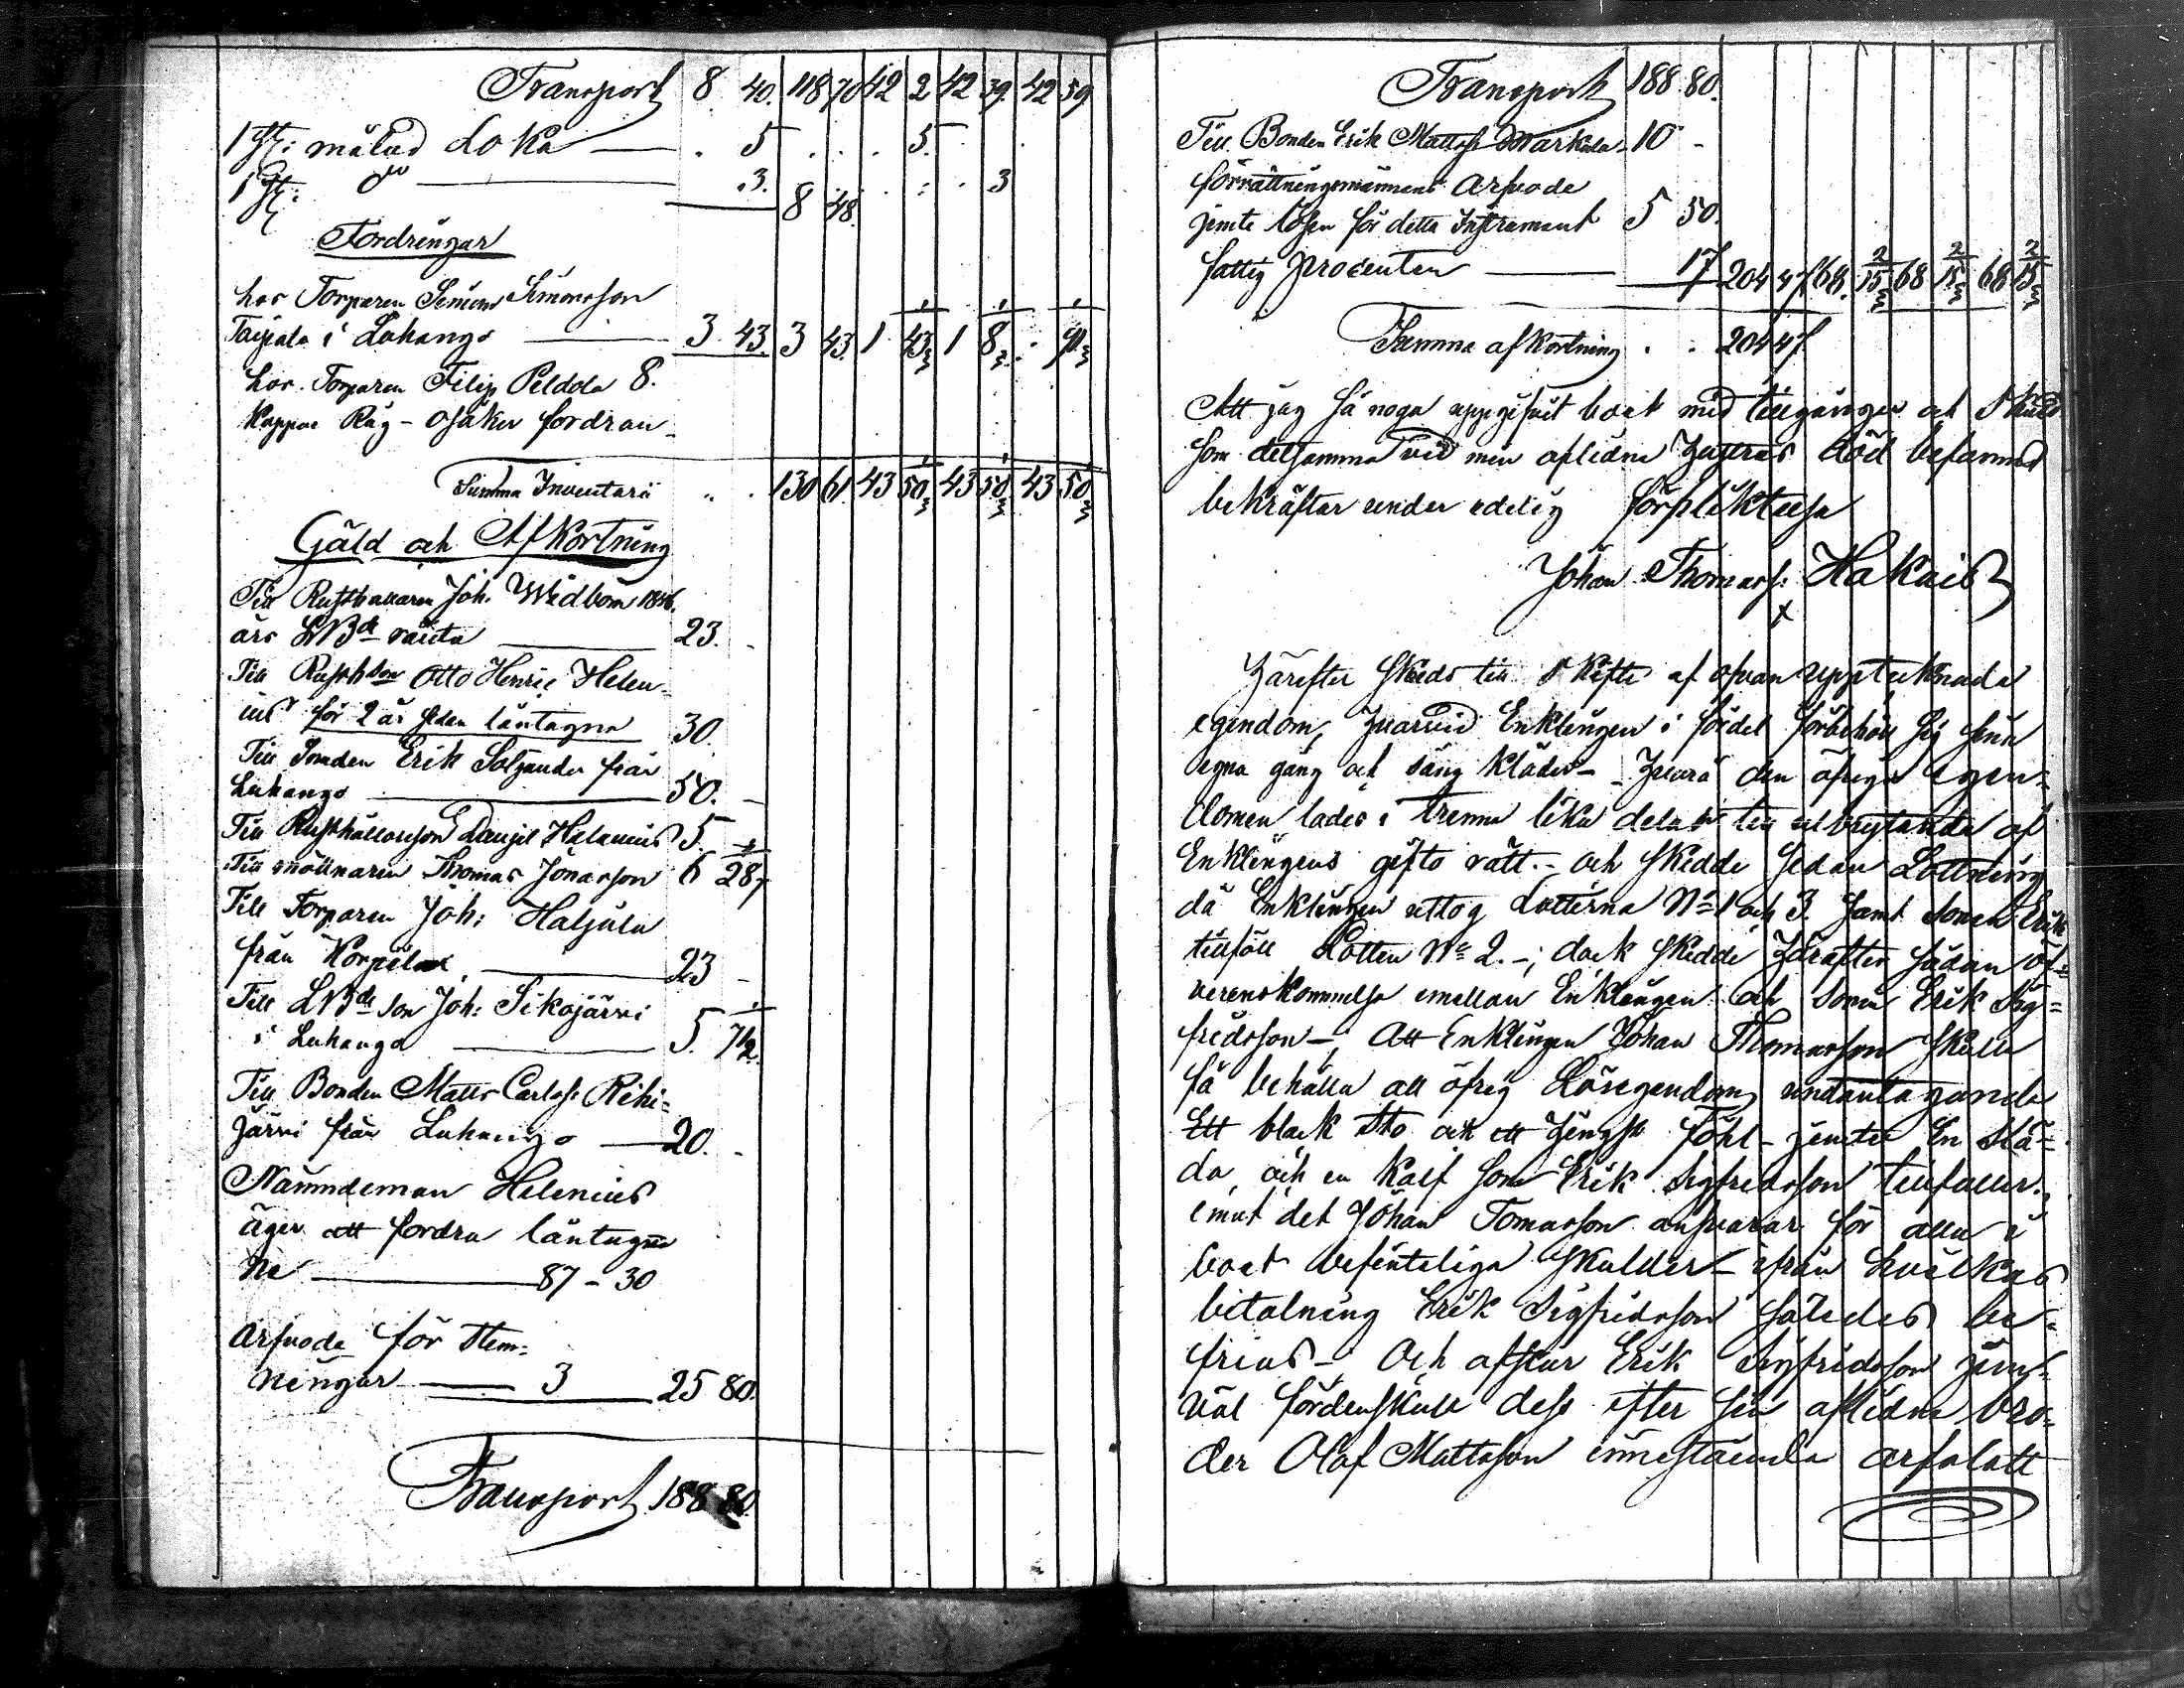 Transport 8 40. 118 70 42 2 42 39. 42 59
1 st: målad Loka — . 5 . . . 5. .
1 st: do — . 3. 8 48. . . . 3
Fordringar
hos Torparen Simon Simonsson
Taipala i Luhango — 3 43. 3 43. 1 43 1/3 1 8 1/3 . 91 1/3
hos Torparen Filip Peldola 8.
Kappar Råg - osäker fordran
Summa Inventarii . . 130 61. 43 50 1/3 43 50 1/3 43 50 1/3
Gäld och Afkortning
Till Rusthållaren Joh. Widbom 1846.
års LBde ränta — 23. -
Till Rusthson Otto Henric Helen-
ius för 2 år sedan läntagne 30.
Till Erik Saxander från
Luhango — 50. -
Till Rusthållarson Daniel Helenius 5. -
Till möllnaren Thomas Jonasson 6 28 1/7
Till Torparen Joh: Haljala
från Korpilax — 23 -
Till LBde son Joh: Sikajärvi
i Luhango — 5. 71/2.
Till Bonden Matts Carlss: Rihi-
järvi från Luhango — 20. -
Nämndeman Helenius
äger att fordra läntagne
Ne — 87 - 30
Arfvode för stem-
ningar — 3 — 25 80.
Transport 188 80.
Transport 188 80.
Till Bonden Erik Mattss Markula - 10 -
förrättningsmännens Arfvode
jemte lösen för detta Instrument 5 50.
fattig procenten — 17 204 47 68. 2/15 68 2/15 68 2/15
Summa afkortning . . 204 47
Att jag så noga uppgifvit boet med tillgångar och skuld
som detsamma vid min aflidna hustrus död befanns
bekräftar under edelig förpliktelse
Johan Thomass: Hakais
x
Härefter skreds till skifte af ofvan upptecknade
egendom, hvarvid Enklingen i fördel förbehöll sig sina
egna gång och säng kläder - hvarå den öfriga egen-
domen lades i trenne lika delar till utbrytande af
Enklingens gifto rätt. - och skedde sedan Lottning
då Enklingen uttog Lotterna No 1 och 3. samt sonen Erik
tillföll Lotten No 2. -; dock skedde härefter sådan öf-
verenskommelse emellan Enklingen och sonen Erik Sig=
fridsson -; Att Enklingen Johan Thomasson skulle
få behålla all öfrig Lösegendom, undantagande
Ett black sto och ett hingst föhl - jemte En slä-
da, och en kalf som Erik Sigfridsson tillfaller.,
emot det Johan Tomasson ansvarar för alla i
boet befinteliga skulder - ifrån hvilkas
betalning Erik Sigfridsson således be-
frias -; Och afstår Erik Sigfridsson jem-
väl fördenskull dess efter sin aflidne bro-
der Olof Mattsson innestående arfslott